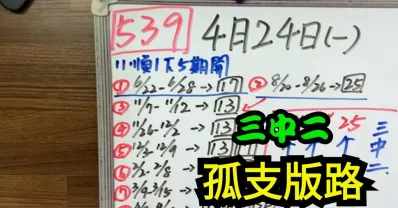 539 4月24日(一)
11順1下5期開
① 6/22-6/28→17 ② 8/20-8/26→25
③ 11/7-11/12→13
④ 11/26-12/2→13
⑤ 12/3-12/9→13
2/2-2/8
⑦ 3/9-3/15
25
三中二
三中二
孤支版路